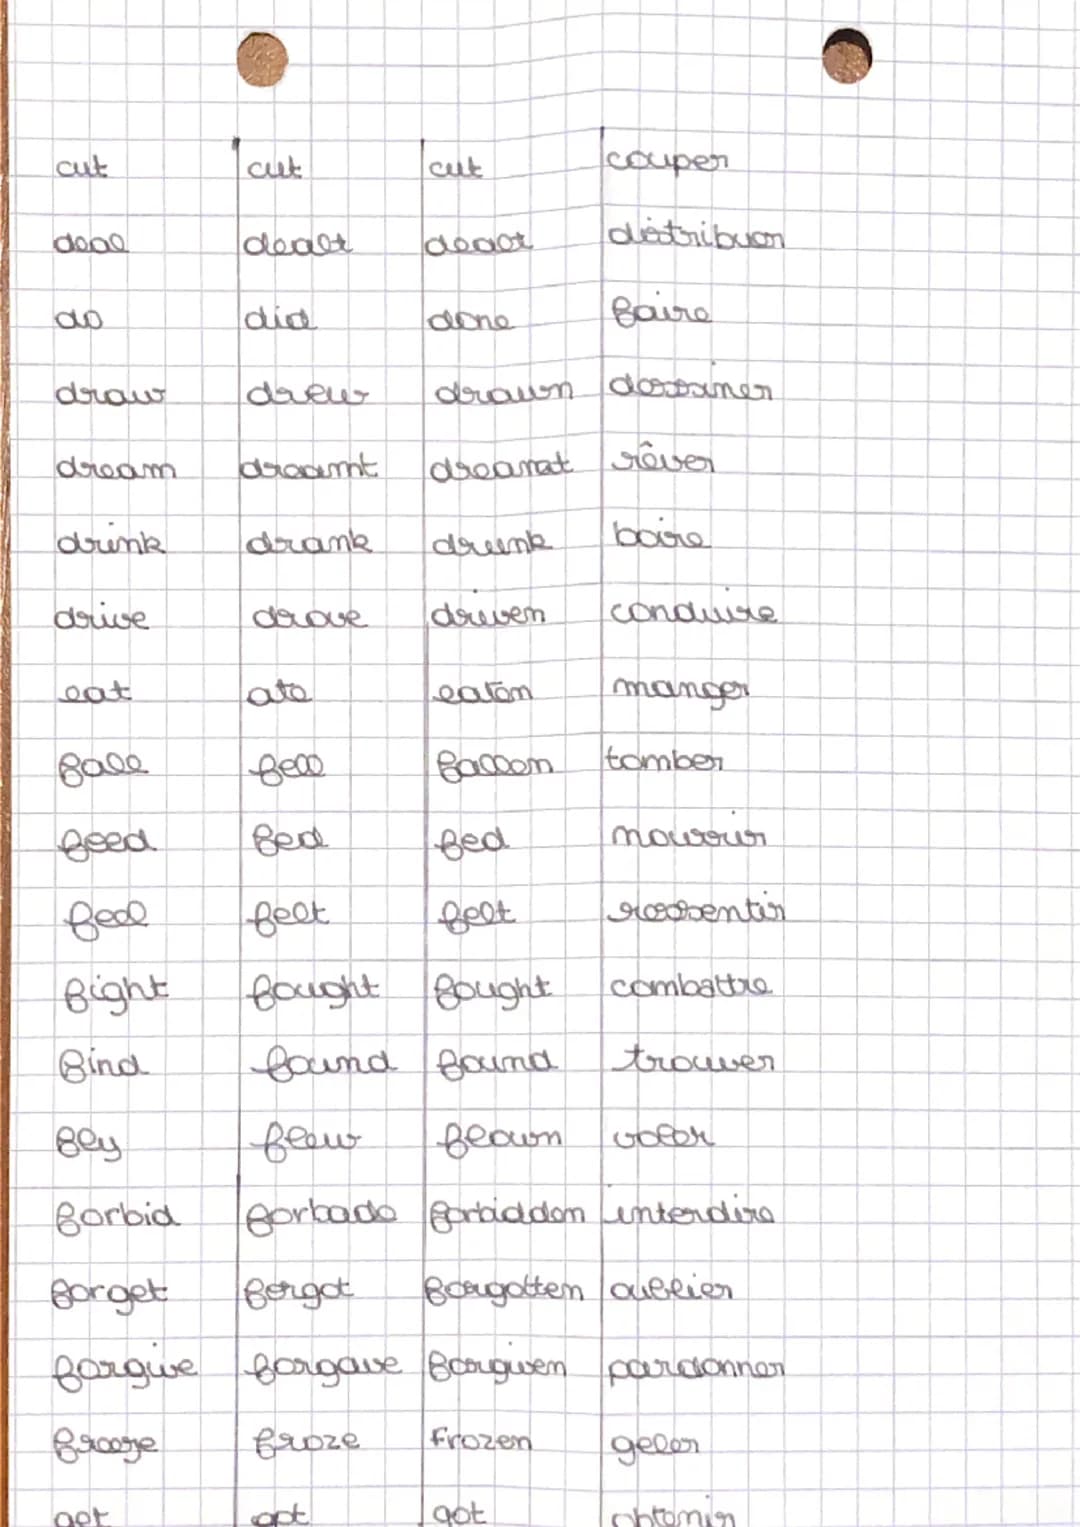 cut cut cut couper
deal dealt dealt distribuer
do did done faire
draw drew drawn dessiner
dream dreamt dreamt rêver
drink drank drunk boire
drive drove driven conduire
eat ate eaten manger
fall fell fallen tomber
feed fed fed nourrir
feel felt felt ressentir
fight fought fought combattre
find found found trouver
fly flew flown voler
forbid forbade forbidden interdire
forget forgot forgotten oublier
forgive forgave forgiven pardonner
freeze froze frozen geler
get got got obtenir